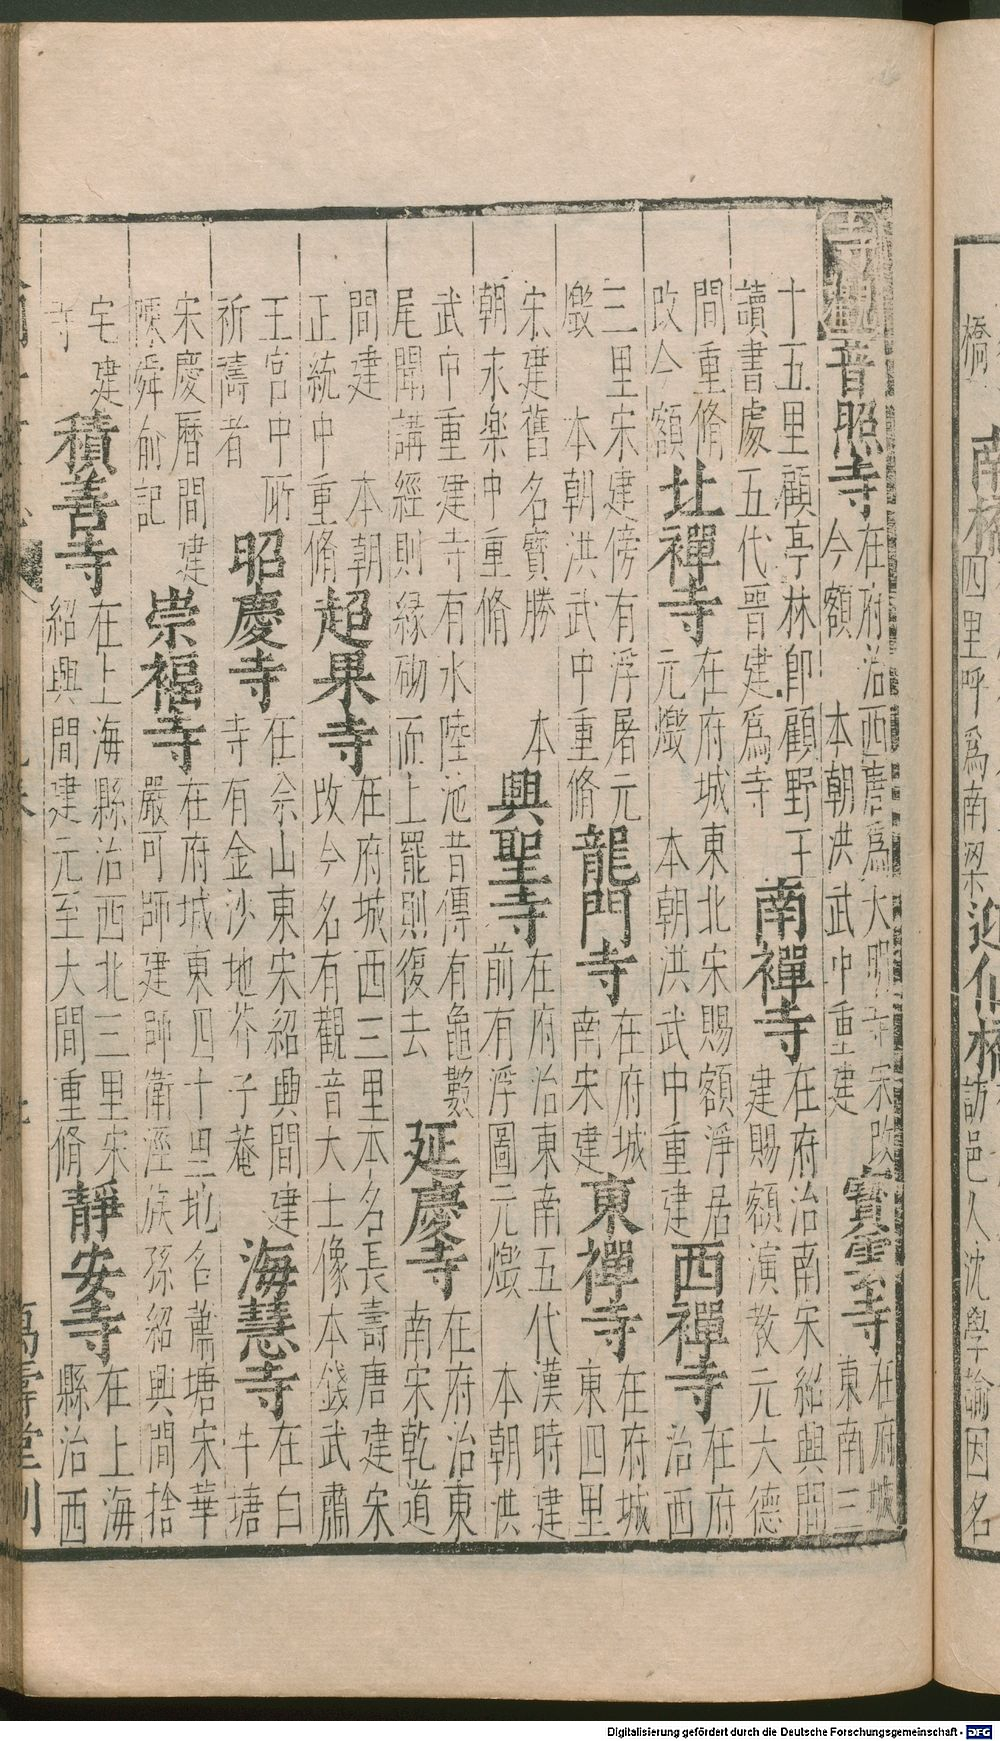 寺觀
普照寺 在府治西唐爲大明寺宋改
今額 本朝洪武中重建
寶雲寺 在府城
東南三
十五里顧亭林卽顧野王
讀書處五代晉建爲寺
南禪寺 在府治南宋紹興間
建賜額演教元大德
間重脩
改今額
北禪寺 在府城東北宋賜額淨居
元燬 本朝洪武中重建
西禪寺 在府
治西
三里宋建傍有浮屠元
燬 本朝洪武中重脩
龍門寺 在府城
南宋建
東禪寺 在府城
東四里
宋建舊名寶勝 本
朝永樂中重脩
興聖寺 在府治東南五代漢時建
前有浮圖元燬 本朝洪
武中重建寺有水陸池昔傳有龜數
尾聞講經則緣砌而上罷則復去
延慶寺 在府治東
南宋乾道
間建 本朝
正統中重脩
超果寺 在府城西三里本名長壽唐建宋
改今名有觀音大士像本錢武肅
王宮中所
祈禱者
昭慶寺 在佘山東宋紹興間建
寺有金沙地芥子菴
海慧寺 在白
牛塘
宋慶曆間建
陳舜俞記
崇福寺 在府城東四十里地名蕭塘宋華
嚴可師建師衛涇族孫紹興間捨
宅建
寺
積善寺 在上海縣治西北三里宋
紹興間建元至大間重脩
靜安寺 在上海
縣治西
萬壽堂刊
橋 南橋 四里呼爲南梁
迎仙橋 訪邑人沈學諭因名
Digitalisierung gefördert durch die Deutsche Forschungsgemeinschaft - DFG